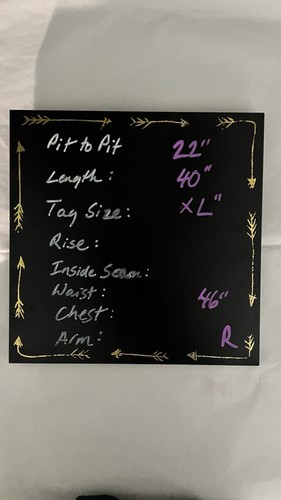 Pit to Pit 22"
Length: 40"
Tag Size: XL"
Rise:
Inside Seam:
Waist: 46"
Chest:
Arm: R